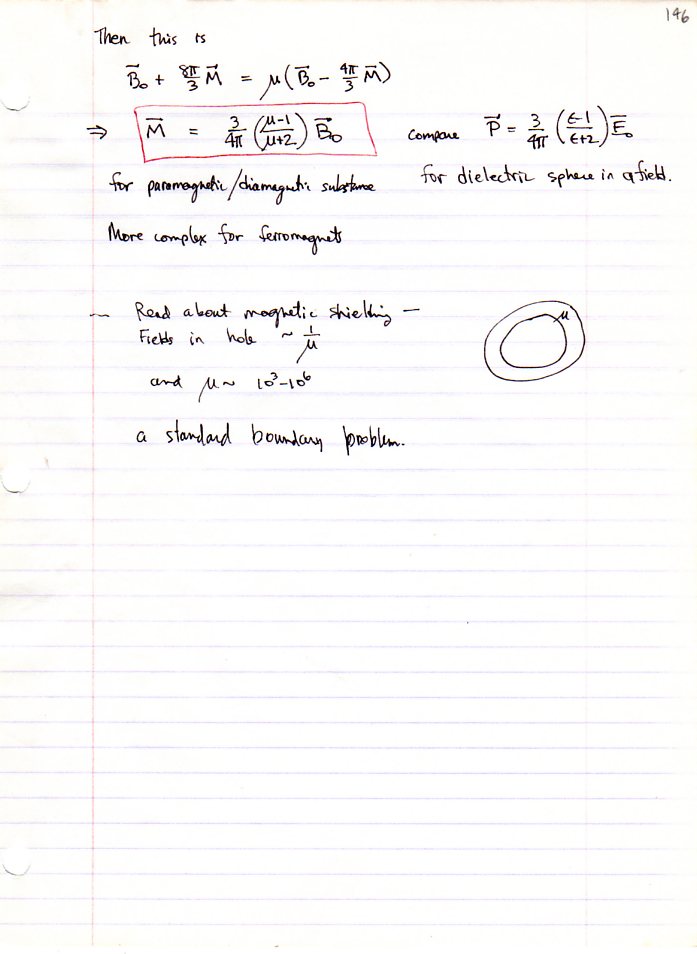 146
Then this is
B⃗₀ + 8π/3 M⃗ = μ(B⃗₀ - 4π/3 M⃗)
⇒ M⃗ = 3/4π (μ-1/μ+2) B⃗₀ compare P⃗ = 3/4π (ε-1/ε+2) E⃗₀
for paramagnetic/diamagnetic substance for dielectric sphere in a field.
More complex for ferromagnets
~ Read about magnetic shielding —
Fields in hole ~ 1/μ
μ
and μ ~ 10³-10⁶
a standard boundary problem.